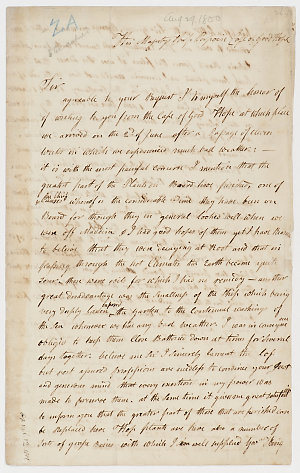 Aug 29 1800
His Majestys Ship Porpoise Cape of Good Hope
Sir
agreeable to your Request I do myself the Honor of
of writing to you from the Cape of Good Hope at which place
we arrived on the of June after a Passage of eleven
weeks in which we experienced much bad weather : —
it is with the most painful concern I mention that the
greatest part of the Plants on Board have perished, one of
the thing
whereof is the considerable time they have been on
Board for though they in general looked well when we
were off Madeira & I had good hopes of them yet I have reason
to believe that they were decaying at Root and that in
passing through the hot Climate the Earth became quite
sour, there were evil for which I had no remedy — another
great disadvantage was the smallness of the Ship which being
very deeply laden the garden to the continual washings of
exposed
the Sea whenever we had any bad weather. I was in consequence
obliged to keep them close Batten'd down at times for several
days together. believe me Sir I sincerely lament the loss
but rest assured
and generous mind that every exertion in my power was
made to preserve them. at the same time it gives me great satisfaction
to inform you that the greater part of those that are perished can
be replaced here Hop plants are here also a number of
sort of grape vines with which I am well supplied Govr King